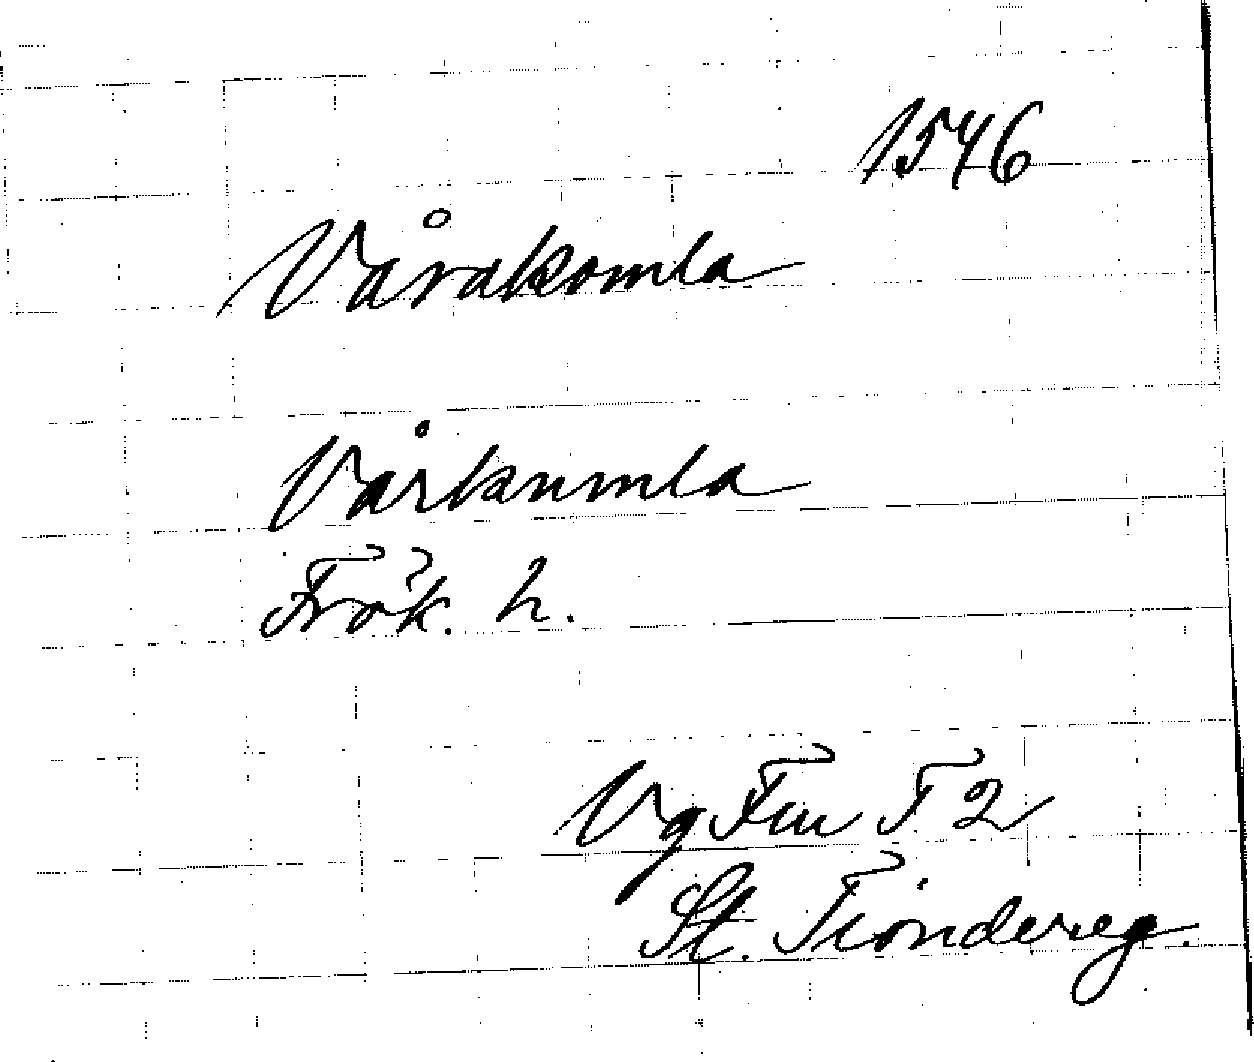 1546
Vårakomla
Vårkumla
Frök. h.
Vg Fru F 2
St. Tiondereg.